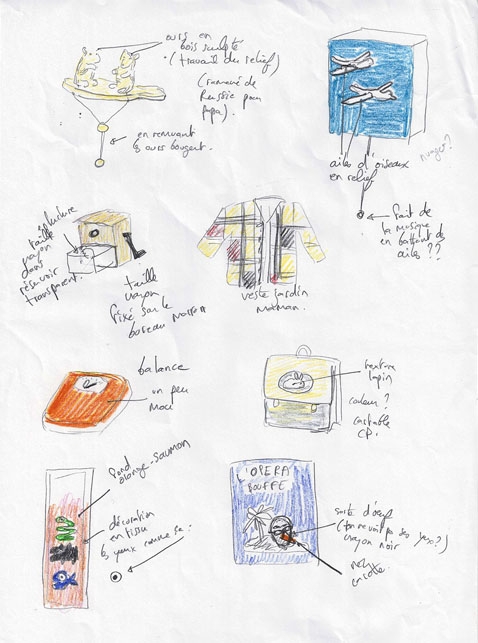 ours en
bois sculpté
(travail du relief)
(ramené de
Russie pour
Papa).
en remuant
les ours bougent.
ailes d'oiseaux
en relief
nuages?
fait de
la musique
en battant de
ailes ??
taille
crayon
dans
réservoir
transparent.
taille
crayon
fixé sur le
bureau
veste jardin
Maman.
balance
un peu
mou
texture
lapin
couleur ?
cartable
CP.
fond
orange-saumon
décoration
en tissu
yeux comme ça :
L'OPERA
BOUFFE
sorte d'œuf
(on ne voit pas ses yeux?)
crayon noir